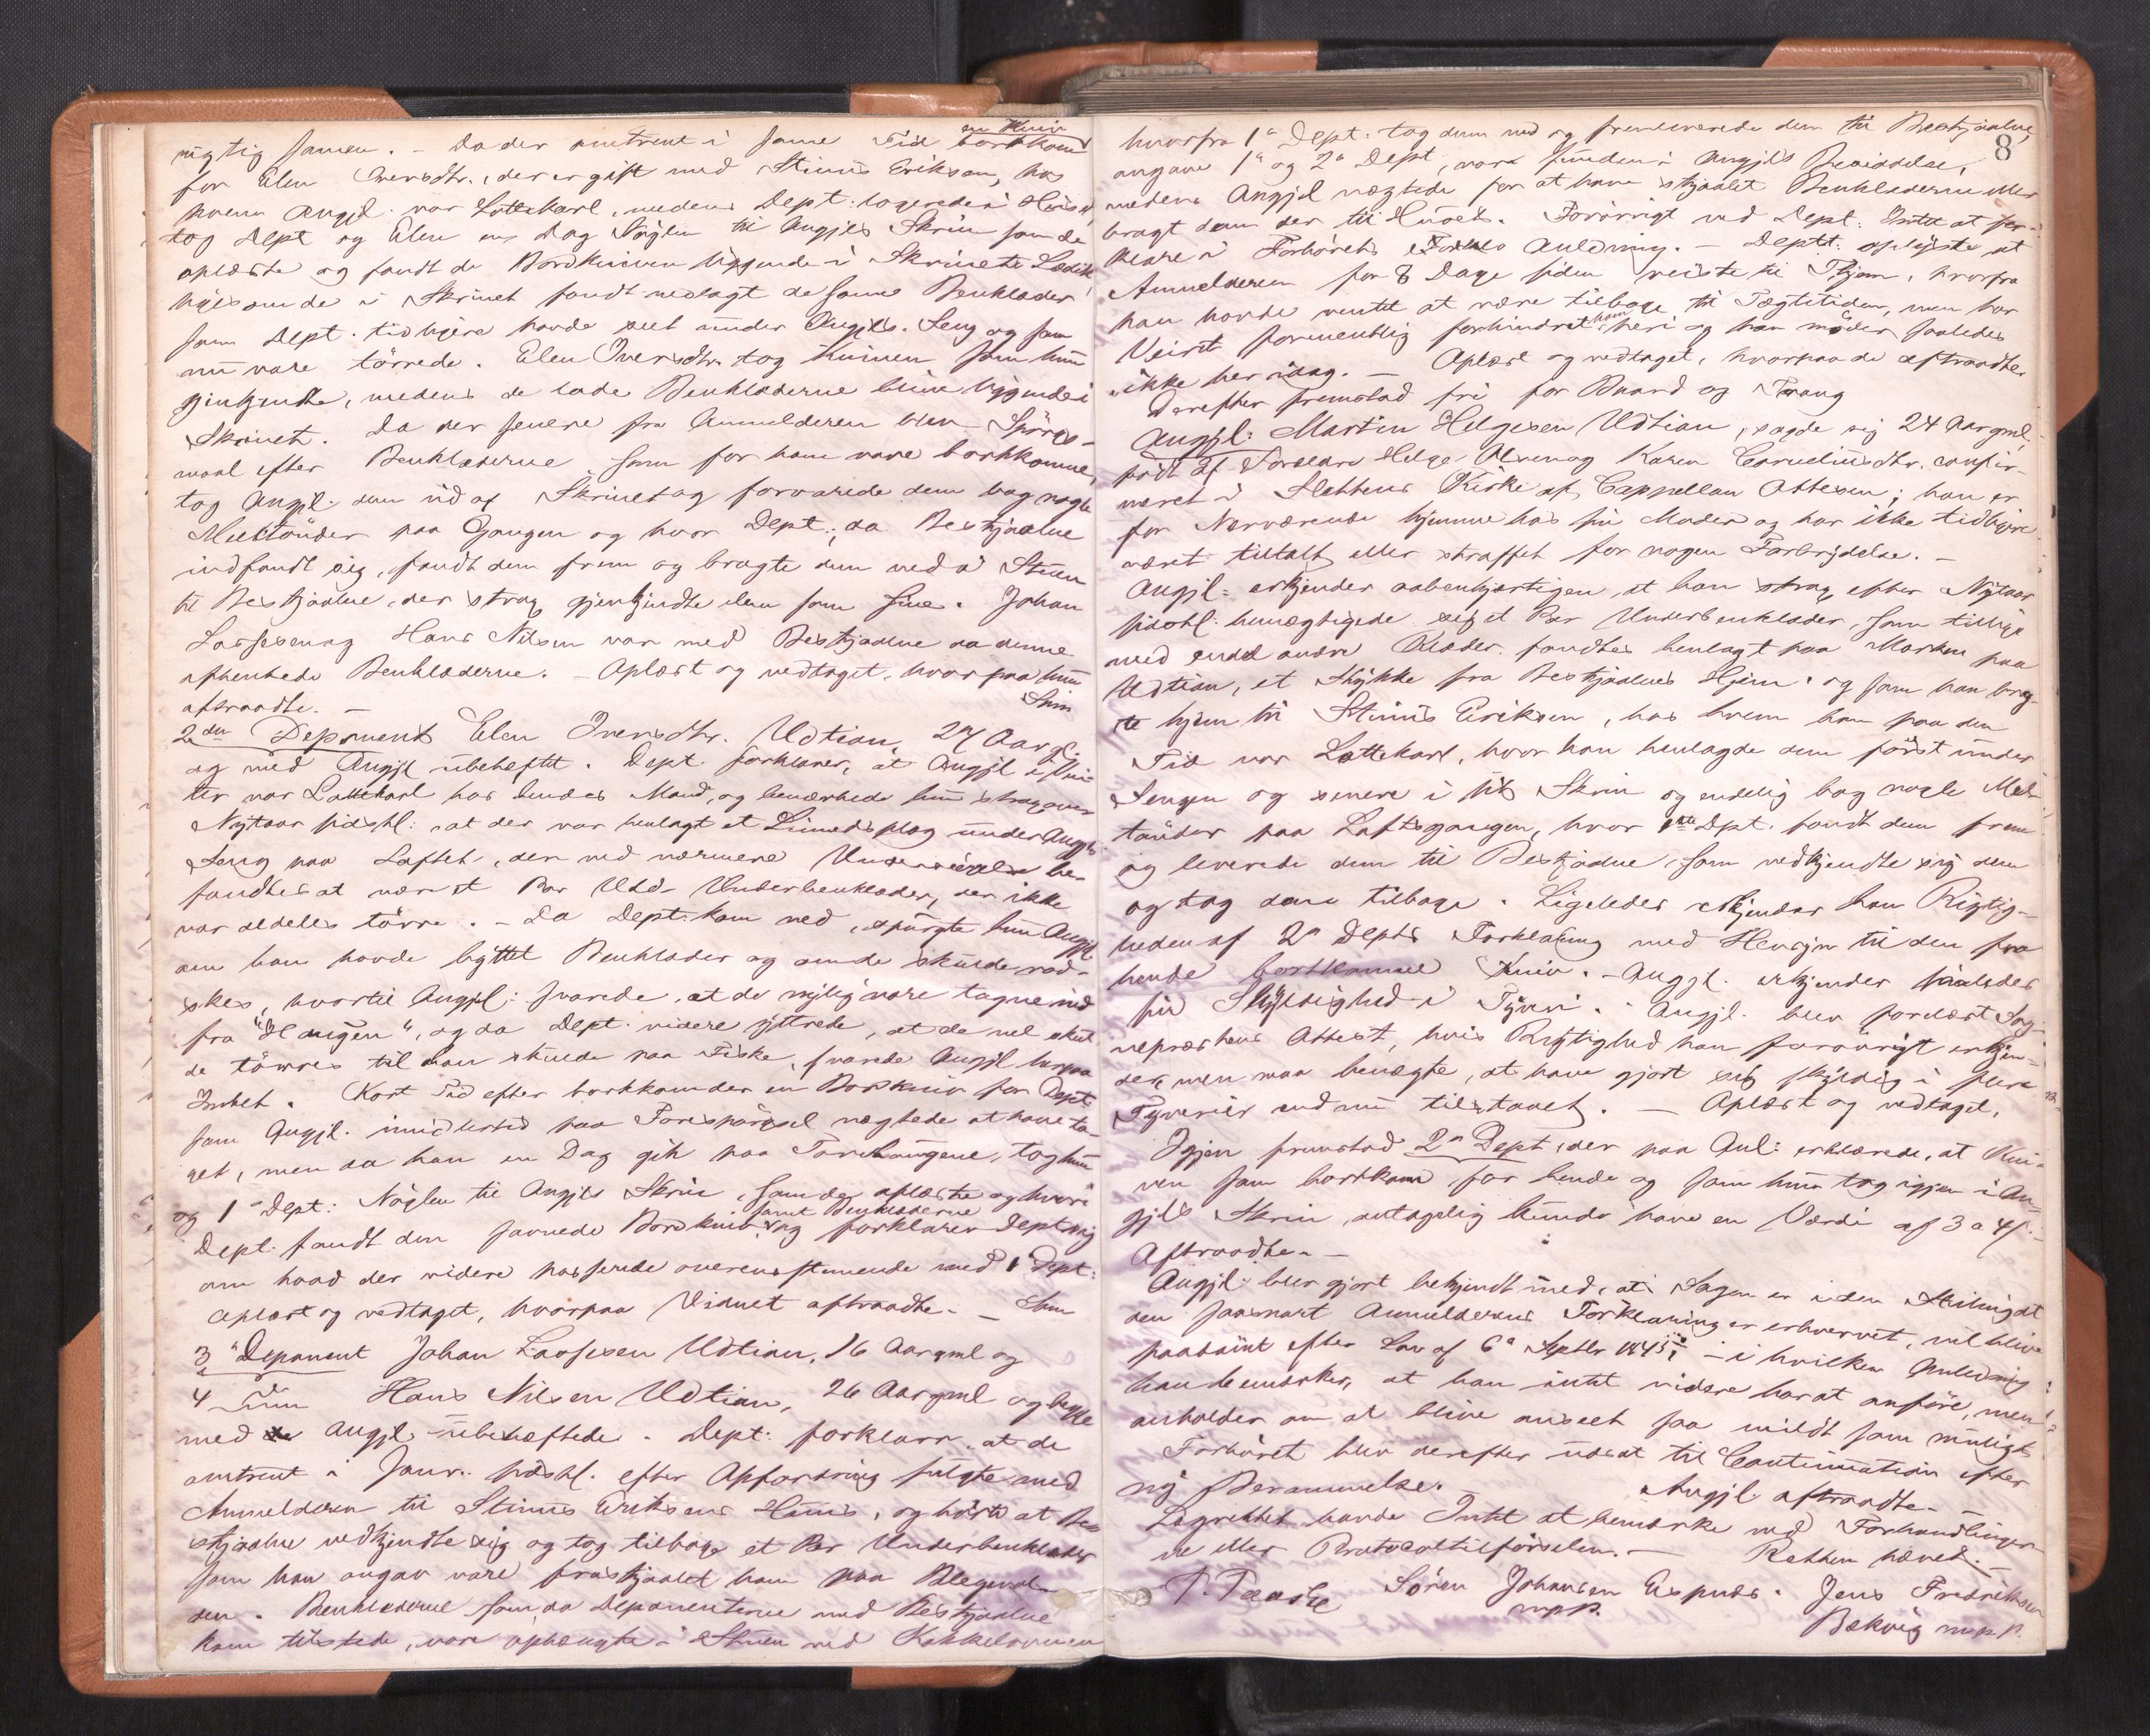 rigtig samen. – Da der omtrent i samme Tid en Kniv bortkom
for Elen Iversdtr., der er gift med Stinus Eriksen, hos
hvem Angjl. var Lottekarl, medens Dept. logerede i Huset,
tog Dept og Elen en Dag Nøglen til Angjls Skrin som de
oplaaste og fandt da Bordkniven liggende i Skrinets Leddik
ligesom de i Skrinet fandt nedlagt de samme Benklæder
som Dept. tidligere havde seet under Angjls. Seng og som
nu vare tørrede. Elen Iversdtr. tog Kniven som hun
gjenkjendte, medens de lode Benklæderne blive liggende i
Skrinet. Da der senere fra Anmelderen blev Spørgs-
maal efter Benklæderne, som for ham vare bortkomne,
tog Angjl. dem ud af Skrinet og forvarede dem bag nogle
Meeltønder paa Gangen og hvor Dept., da Bestjaalne
indfandt sig, fandt dem frem og bragte dem ned i Stuen
til Bestjaalne, der strax gjenkjendte dem som sine. Johan
Larssen og Hans Nilsen var med Bestjaalne da denne
afhentede Benklæderne. – Oplæst og vedtaget, hvorpaa hun
aftraadte. –
2den Deponent Elen Iversdtr. Udtian, 27 Aar gl.
og med Angjl ubeheftet. Dept. forklarer, at Angjl i Vin-
ter var Lottekarl hos hendes Mand, og bemærkede hun strax over
Nytaar sidstl: at der var henlagt et Linnedsplag under Angjls
Seng paa Loftet, der ved nærmere Undersøgelse be-
fandtes at være et Par Uld- Underbenklæder, der ikke
var aldeles tørre. – Da Dept. kom ned, spurgte hun Angjl
om han havde byttet Benklæder og om de skulde vad-
skes, hvortil Angjl: svarede, at de nylig vare tagne ind
fra "Haugen", og da Dept. videre yttrede, at de vel skul-
de tørres til han skulde paa Fiske, svarede Angjl herpaa
Intet. Kort Tid efter bortkom der en Bordkniv for Dept.
som Angjl. imidlertid paa Forespørgsel nægtede at have ta-
get, men da han en Dag gik paa Torvhaugene, tog hun
og 1ste Dept: Nøglen til Angjls Skrin, som de oplaaste og hvori
Dept. fandt den savnede Bordkniv samt Benklæderne og forklarer Dept sig
om hvad der videre passerede overensstemmende med 1 Dept:
Oplæst og vedtaget, hvorpaa Vidnet aftraadte. –
3die Deponent Johan Larssen Udtian, 16 Aar gml og
4de Hans Nilsen Udtian, 26 Aar gml og begge
med Angjl. ubeheftede. Dept. forklare, at de
omtrent i Janr. sidstl. efter Opfordring fulgte med
Anmelderen til Stinus Eriksens Huus, og hørte at Be-
stjaalne vedkjendte sig og tog tilbage et Par Underbenklæder
som han angav vare frastjaalet ham paa Blegevol-
den. Benklæderne som, da Deponenterne med Bestjaalne
kom tilstede, vare ophængte i Stuen ved Kakkelovnen
8
hvorfra 1ste Dept. tog dem ned og fremleverede dem til Bestjaalne
angave 1ste og 2den Dept, vare funden i Angjls Besiddelse,
medens Angjl nægtede for at have stjaalet Benklæderne eller
bragt dem der til Huset. Forøvrigt ved Dept. Intet at for-
klare i Forhørets Anledning. – Deptt. oplyste at
Anmelderen for 8 Dage siden reiste til Hjem, hvorfra
han havde ventet at være tilbage til Tægtetiden, men har
Veiret formentlig forhindret ham heri og han møder saaledes
ikke her idag. – Oplæst og vedtaget, hvorpaa de aftraadte.
Derefter fremstod fri for Baand og Tvang
Angjl: Martin Helgesen Udtian, sagde sig 24 Aar gml.
født af Forældre Helge Olsen og Karen Corneliusdtr. confir-
meret i Slettens Kirke af Cappellan Ottesen; han er
for Nærværende hjemme hos sin Moder og har ikke tidligere
været tiltalt eller straffet for nogen Forbrydelse. –
Angjl: erkjender aabenhjertigen, at han strax efter Nytaar
sidstl: bemægtigede sig et Par Underbenklæder, som tillige
med endel andre Klæder fandtes henlagt paa Marken paa
Udtian, et Stykke fra Bestjaalnes Hjem, og som han brag-
te hjem til Stinus Eriksen, hos hvem han paa den
Tid var Lottekarl, hvor han henlagde dem først under
Sengen og senere i sit Skrin og endelig bag nogle Mel-
tønder paa Loftsgangen, hvor 1ste Dpt. fandt dem frem
og leverede dem til Bestjaalne, som vedkjendte sig dem
og tog dem tilbage. Ligeledes erkjender han Rigtig-
heden af 2den Depts Forklaring med Hensyn til den fra
hende bortkomne Kniv. – Angjl. erkjender saaledes
sin Skyldighed i Tyveri. Angjl. blev forelæst Sog-
nepræstens Attest, hvis Rigtighed han forøvrigt erkjen-
der, men maa benægte, at have gjort sig skyldig i flere
Tyverier end nu tilstaaet. – Oplæst og vedtaget.
Igjen fremstod 2den Dept, der paa Anl: erklærede, at Kni-
ven som bortkom for hende og som hun tog igjen i An-
gjls Skrin, antagelig kunde have en Værdi af 3 a 4 s.
Aftraadte. –
Angjl. blev gjort bekjendt med, at Sagen er i den Stilling at
den saasnart Anmelderens Forklaring er erhvervet, vil blive
paadømt efter Lov af 6te Septbr 1845, – i hvilken Anledning
han bemærker, at han intet videre har at anføre, men
anholder om at blive anseet saa mildt som muligt.
Forhøret blev derefter udsat til Continuation efter
ny Berammelse. Angjl. aftraadte. –
Lagrettet havde Intet at bemærke ved Forhandlinger-
ne eller Protocoltilførselen. – Retten hævet. –
Søren Johansen Espnæs. Jens Fredriksen
mpp. Bækvig mpp.